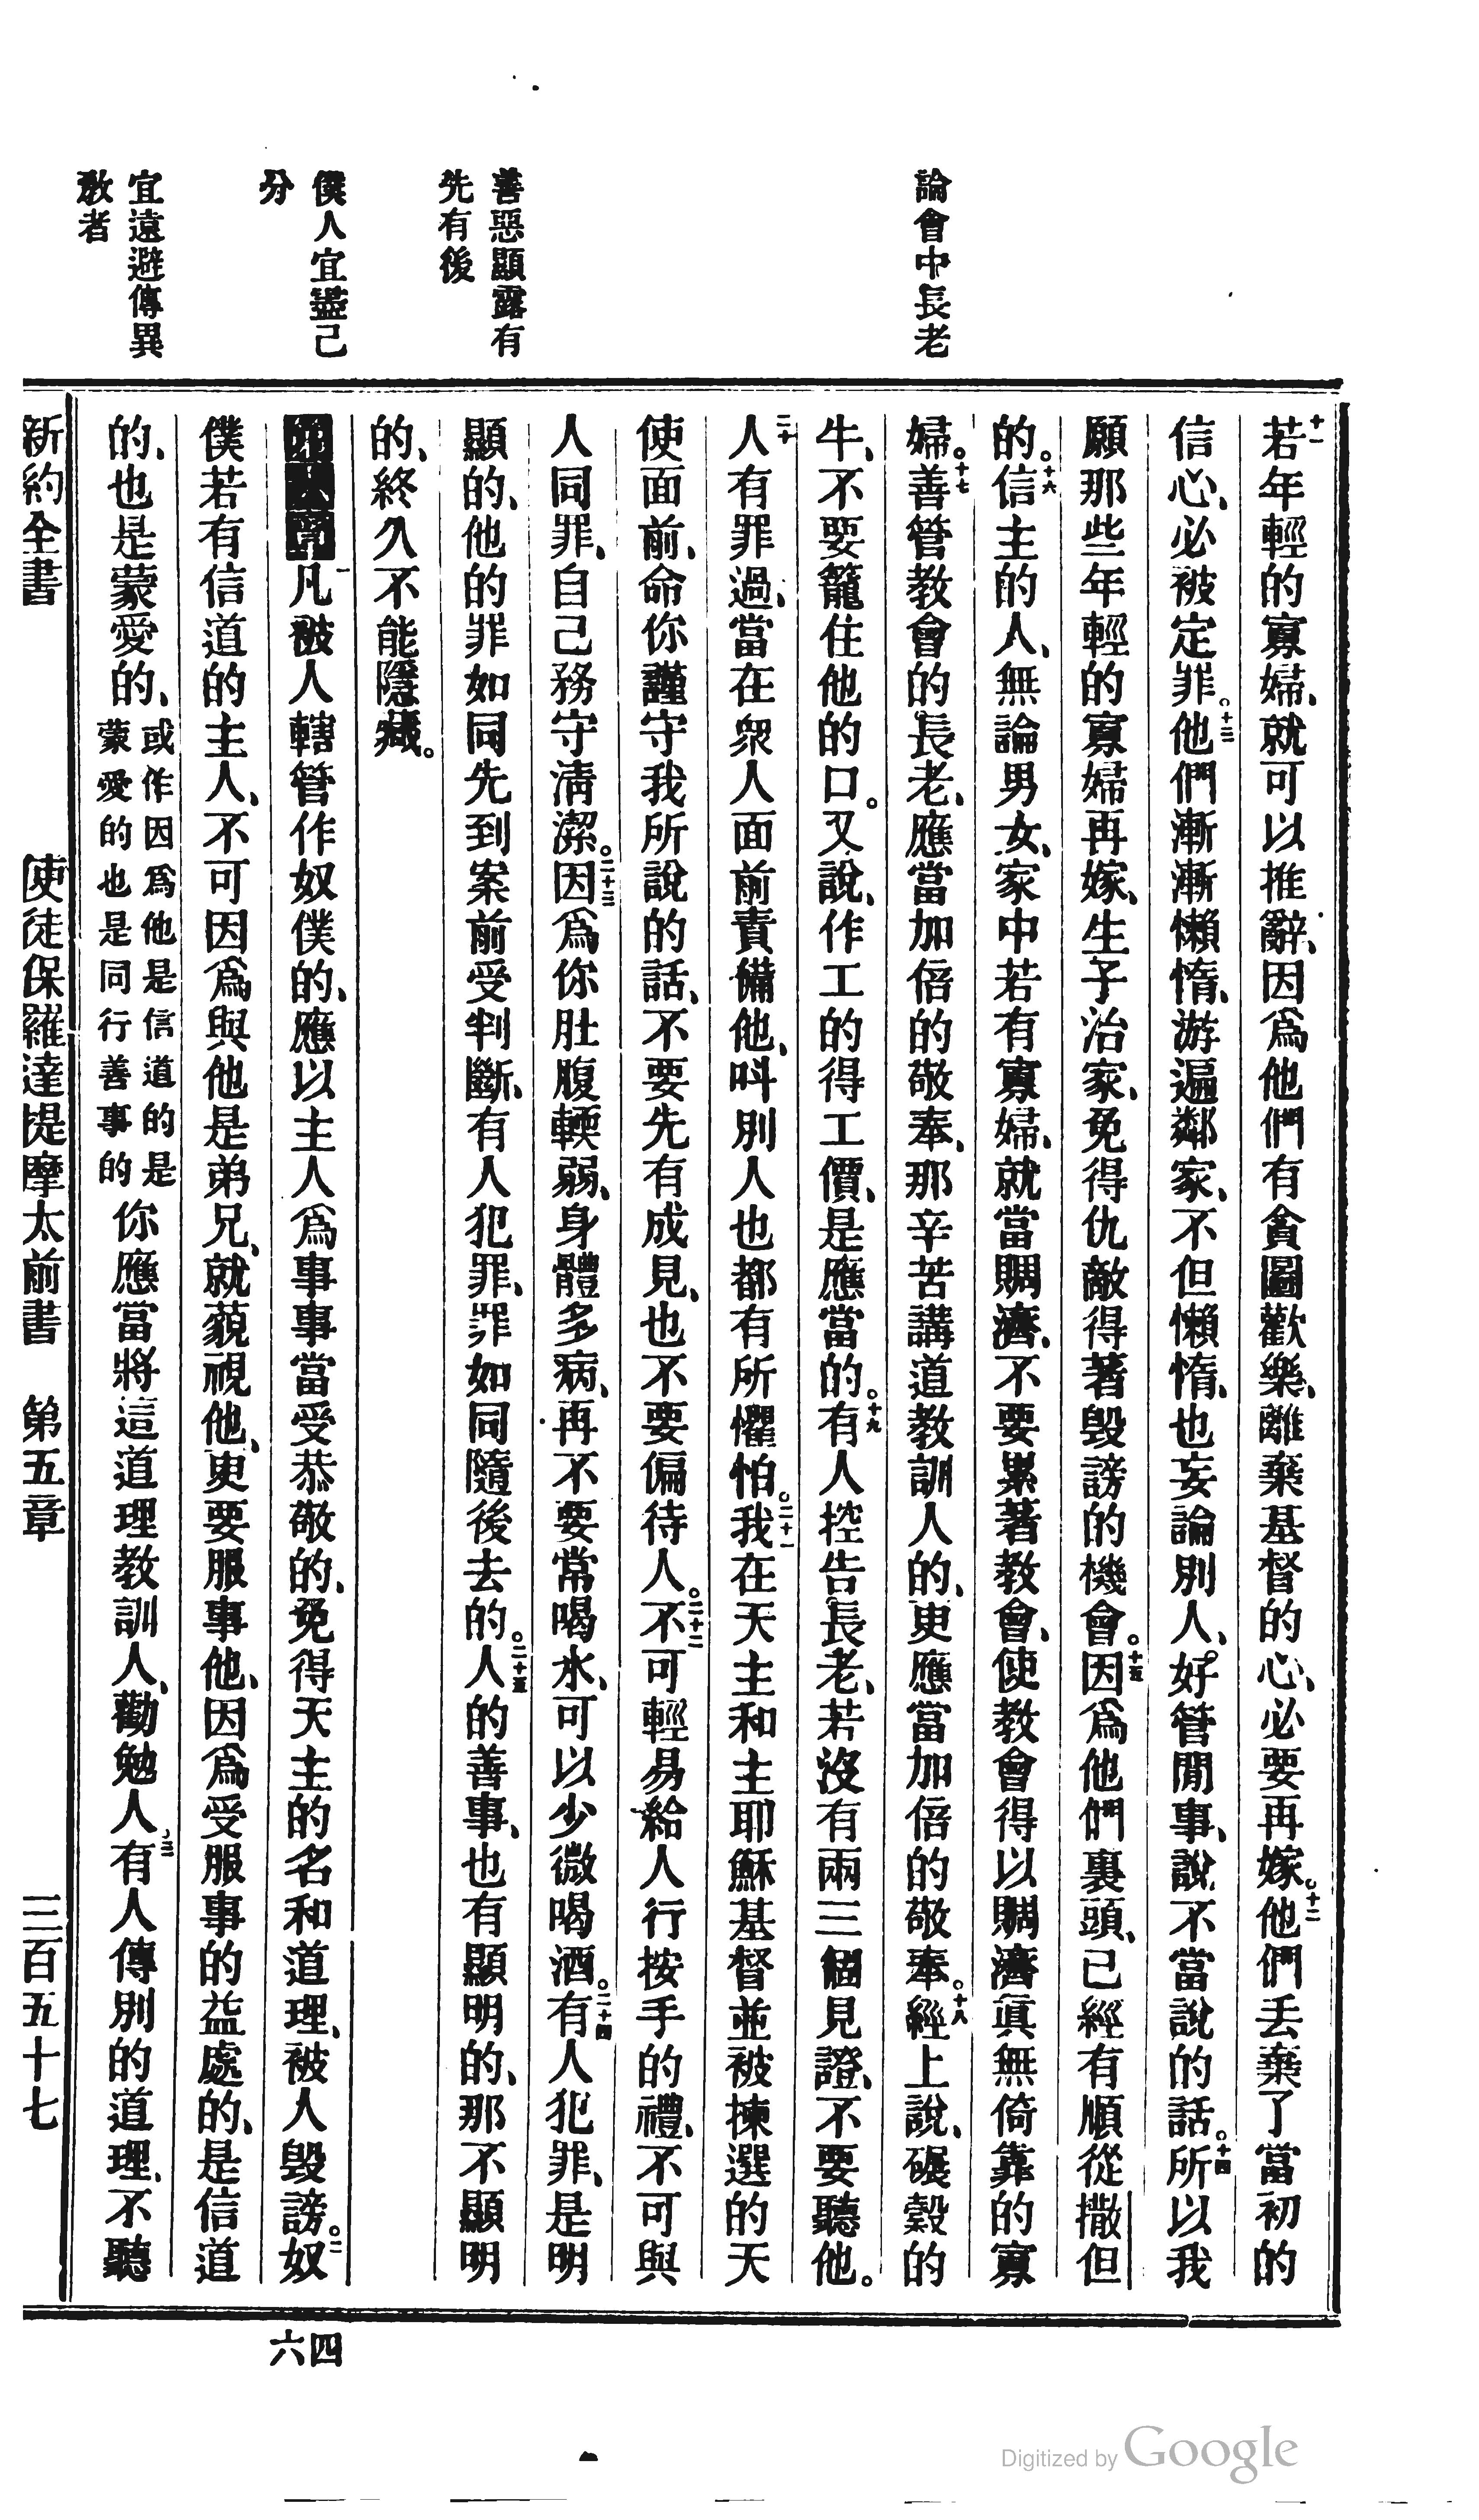 論會中長老
善惡顯露有
先有後
僕人宜盡己
分
宜遠避傳異
敎者
十一若年輕的寡婦、就可以推辭、因爲他們有貪圖歡樂、離棄基督的心、必要再嫁。十二他們丢棄了當初的
信心、必被定罪。十三他們漸漸懶惰、游遍鄰家、不但懶惰、也妄論別人、好管閒事、說不當說的話。十四所以我
願那些年輕的寡婦再嫁、生子治家、免得仇敵得著毀謗的機會。十五因爲他們裏頭、已經有順從撒但
的。十六信主的人、無論男女、家中若有寡婦、就當賙濟、不要累著教會、使教會得以賙濟眞無倚靠的寡
婦。十七善管教會的長老、應當加倍的敬奉、那辛苦講道教訓人的、更應當加倍的敬奉。十八經上說、碾穀的
牛、不要籠住他的口。又說、作工的得工價、是應當的。十九有人控告長老、若沒有兩三個見證、不要聽他。
二十人有罪過、當在衆人面前責備他、呌別人也都有所懼怕。二十一我在天主和主耶穌基督並被揀選的天
使面前、命你謹守我所說的話、不要先有成見、也不要偏待人。二十二不可輕易給人行按手的禮、不可與
人同罪、自己務守淸潔。二十三因爲你肚腹輭弱、身體多病、再不要常喝水、可以少微喝酒。二十四有人犯罪、是明
顯的、他的罪如同先到案前受判斷、有人犯罪、罪如同隨後去的。二十五人的善事、也有顯明的、那不顯明
的、終久不能隱藏。
第六章一凡被人轄管作奴僕的、應以主人爲事事當受恭敬的、免得天主的名和道理、被人毀謗。二奴
僕若有信道的主人、不可因爲與他是弟兄、就藐視他、更要服事他、因爲受服事的益處的、是信道
的、也是蒙愛的、或作因爲他是信道的是蒙愛的也是同行善事的你應當將這道理教訓人、勸勉人、三有人傳別的道理、不聽
新約全書 使徒保羅達提摩太前書 第五章 三百五十七
四
六
Digitized by Google